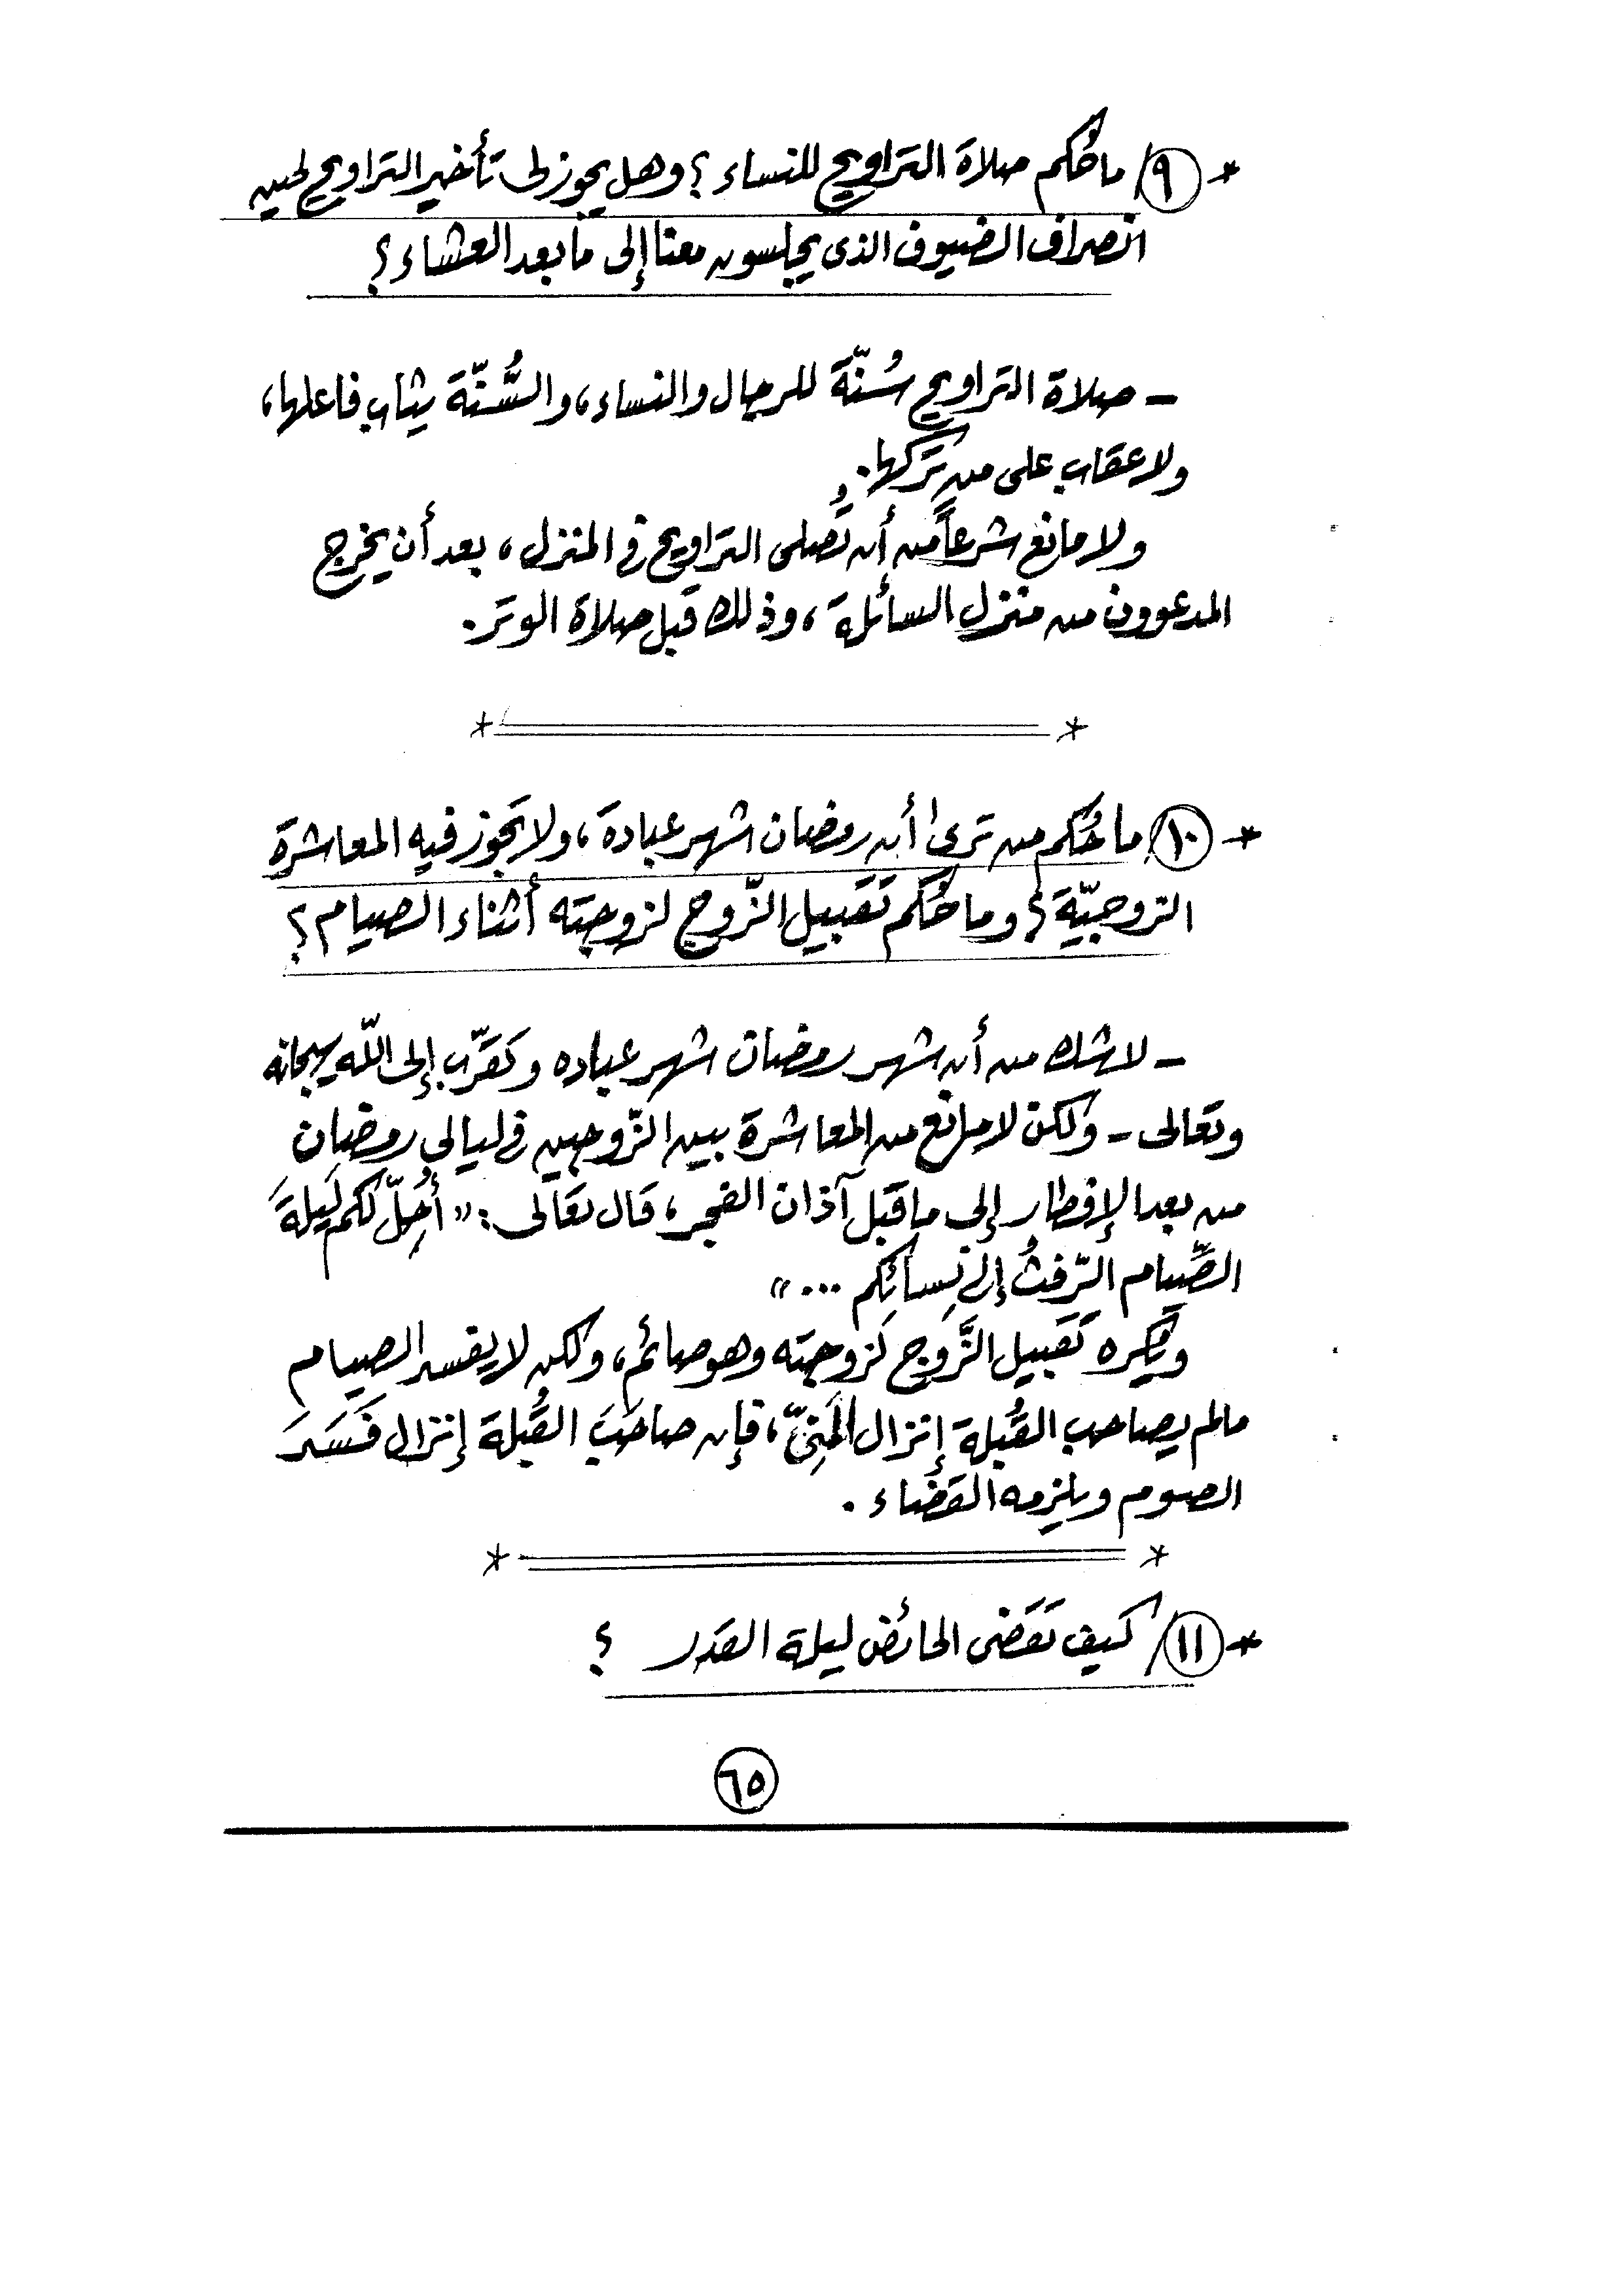 * ٩/ ما حُكم صلاة التراويح للنساء ؟ وهل يجوز لى تأخير التراويح لحين
انصراف الضيوف الذى يجلسون معنا إلى ما بعد العشاء ؟
- صلاة التراويح سُنّة للرجال والنساء ، والسُّنّة يثاب فاعلها ،
ولا عقاب على من تركها .
ولا مانع شرعاً من أن تُصلى التراويح فى المنزل ، بعد أن يخرج
المدعوون من منزل السائلة ، وذلك قبل صلاة الوتر .
* ═════ *
* ١٠/ ما حُكم من ترى أن رمضان شهر عبادة ، ولا تجوز فيه المعاشرة
الزوجيّة ؟ وما حُكم تقبيل الزّوج لزوجته أثناء الصيام ؟
- لا شك من أن شهر رمضان شهر عباده وتقرّب إلى اللّه سبحانه
وتعالى - ولكن لا مانع من المعاشرة بين الزّوجين فى ليالى رمضان
من بعد الإفطار إلى ما قبل آذان الفجر ، قال تعالى : « أُحِلّ لكم لَيلةَ
الصِّيام الرّفثُ إلى نِسائِكم ... »
ويُكره تَقبيل الزَّوج لزوجته وهو صائم ، ولكن لا يفسد الصيام
مالم يصاحب القُبلة إنزال المَنِىّ ، فإن صاحَبَ القُبلة إنزال فَسَدَ
الصوم ويلزمه القضاء .
* ═════ *
* ١١/ كيف تقضى الحائض ليلة القدر ؟
٦٥